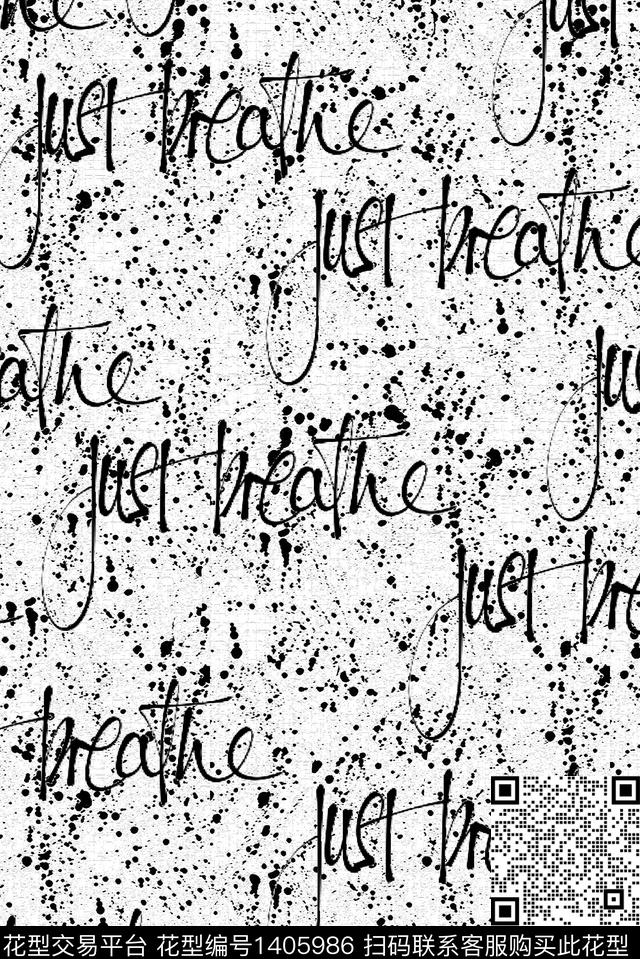 just
just breathe
just breathe
athe
just
just breathe
just bre
breathe
just br
花型交易平台 花型编号1405986 扫码联系客服购买此花型